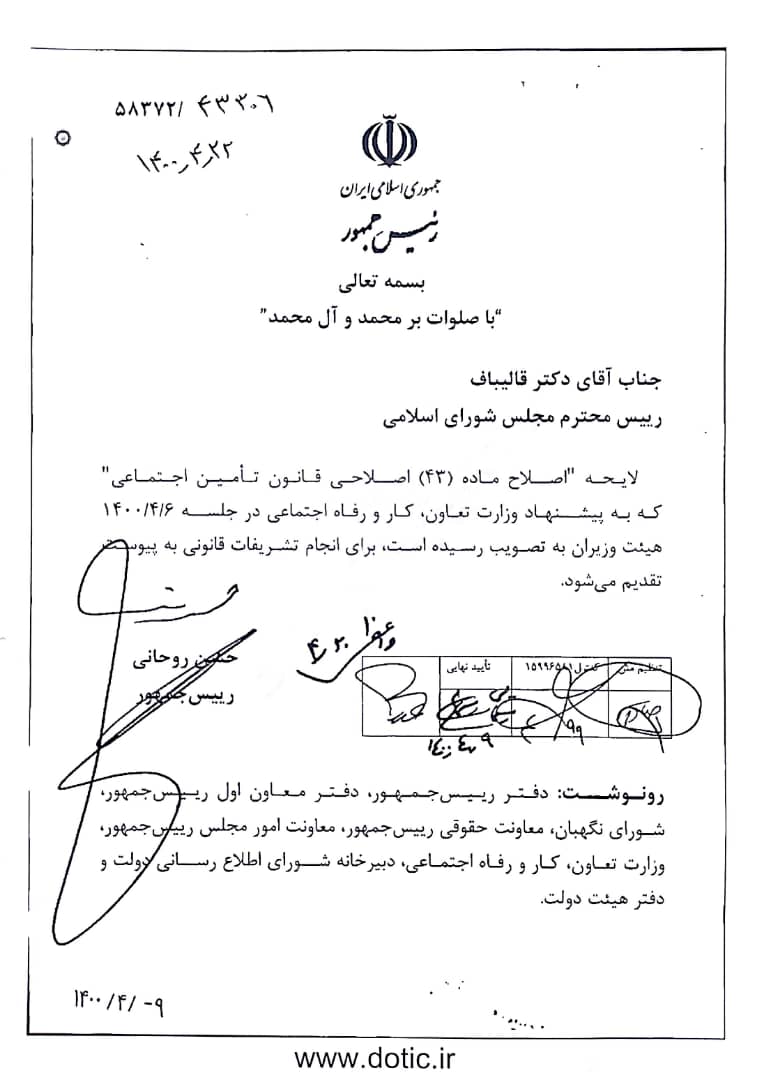 ۵۸۳۷۲/ ۴۳۳۰۶
۱۴۰۰٫۴٫۲۲
جمهوری اسلامی ایران
رئیس جمهور
بسمه تعالی
"با صلوات بر محمد و آل محمد"
جناب آقای دکتر قالیباف
رییس محترم مجلس شورای اسلامی
لایـحـه "اصـلاح مـاده (۴۳) اصـلاحـی قـانون تـأمـین اجـتمـاعی"
کـه بـه پیشـنهاد وزارت تعاون، کار و رفاه اجتماعی در جلسه ۱۴۰۰/۴/۶
هیئت وزیران به تصویب رسیده است، برای انجام تشریفات قانونی به پیوست
تقدیم می‌شود.
حسن روحانی
رییس‌جمهور
تنظیم متن
کنترل ۱۵۹۹۶۵۸۱
تأیید نهایی
رونـوشـت: دفـتر رییـس‌جـمـهور، دفـتر معـاون اول رییـس‌جمهور،
شـورای نگهبان، معاونت حقوقی رییس‌جمهور، معاونت امور مجلس رییس‌جمهور،
وزارت تعـاون، کـار و رفـاه اجتماعی، دبیرخانه شـورای اطلاع رسـانی دولت و
دفتر هیئت دولت.
۱۴۰۰/۴/-۹
www.dotic.ir